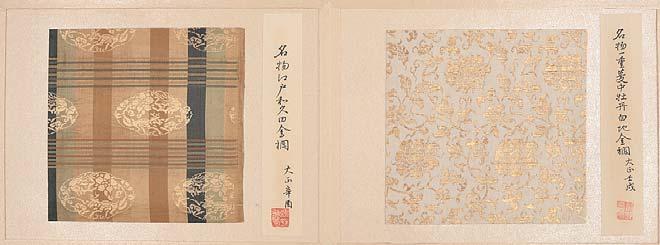 名物江戸和久田金襴
大正辛酉
名物一重蔓中牡丹白地金襴
大正壬戌